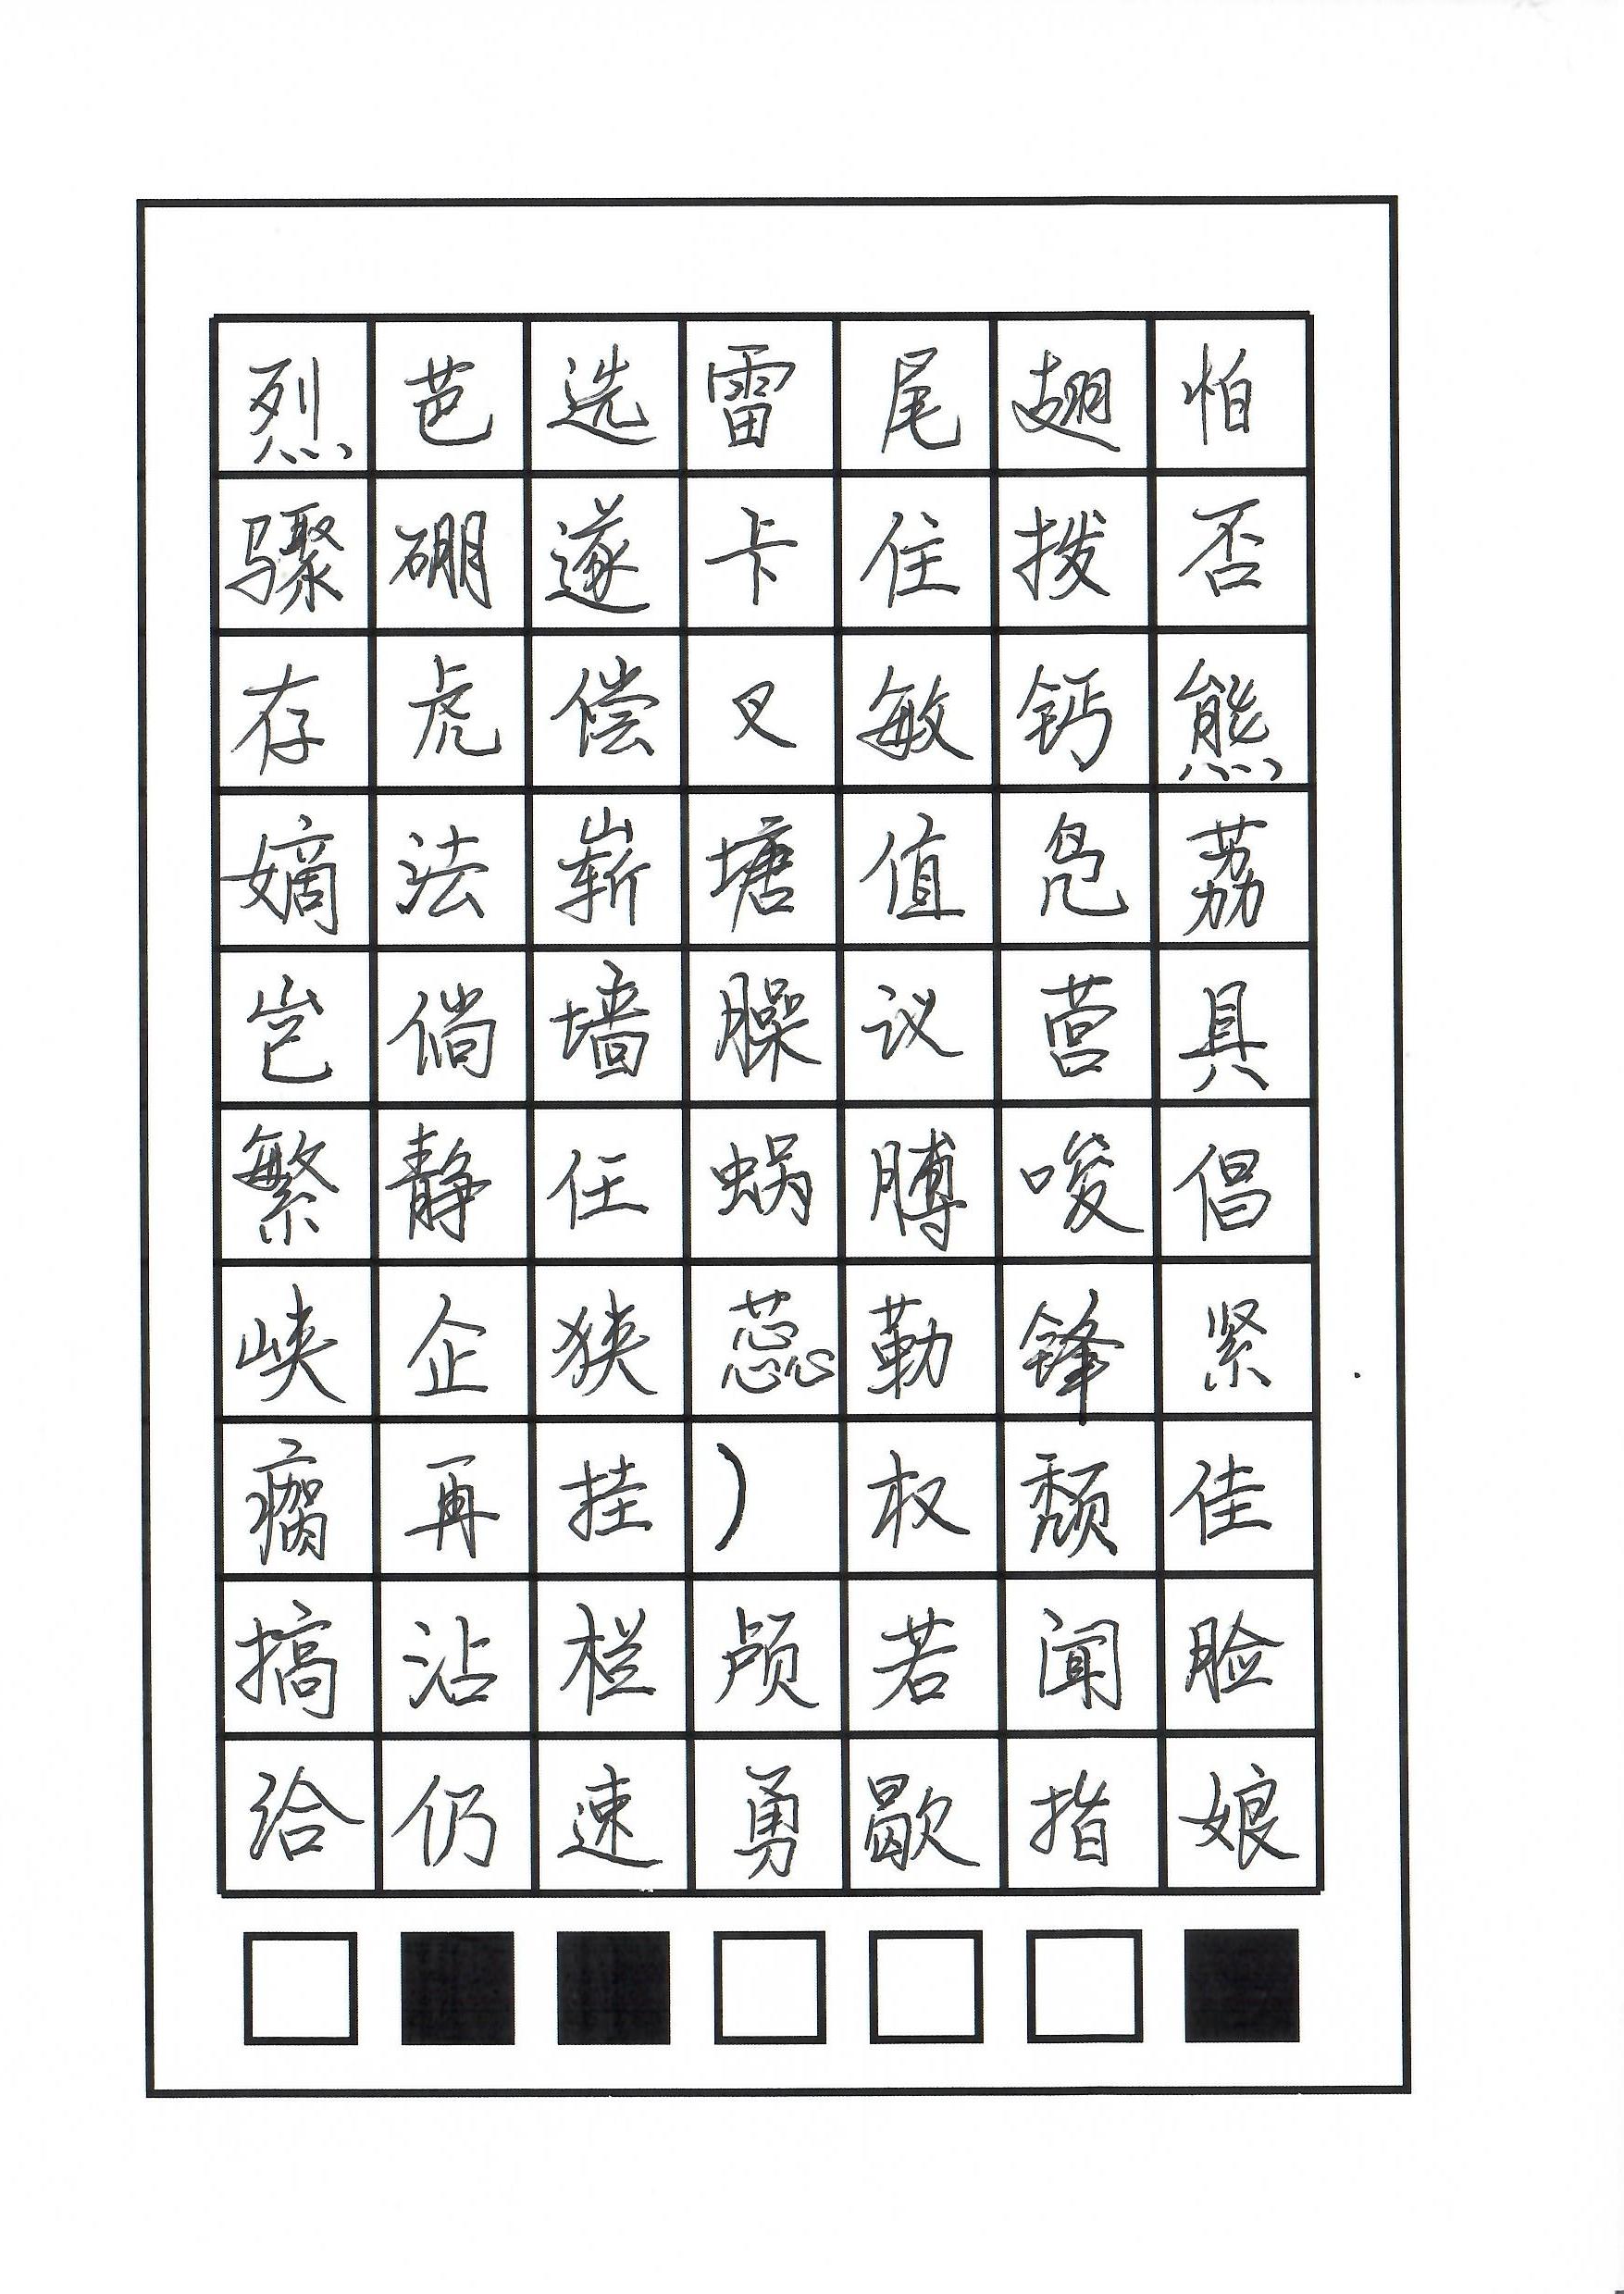 烈芭选雷尾翅怕
骤硼遂卡住拨否
存虎偿叉敏钙熊
嫡法崭塘值凫荔
岂倘墙臊议营具
繁静任蜗膊唆倡
峡企狭蕊勒锋紧
瘸再挂）权颓佳
搞沾栏颅若闻脸
给仍速勇歇指娘